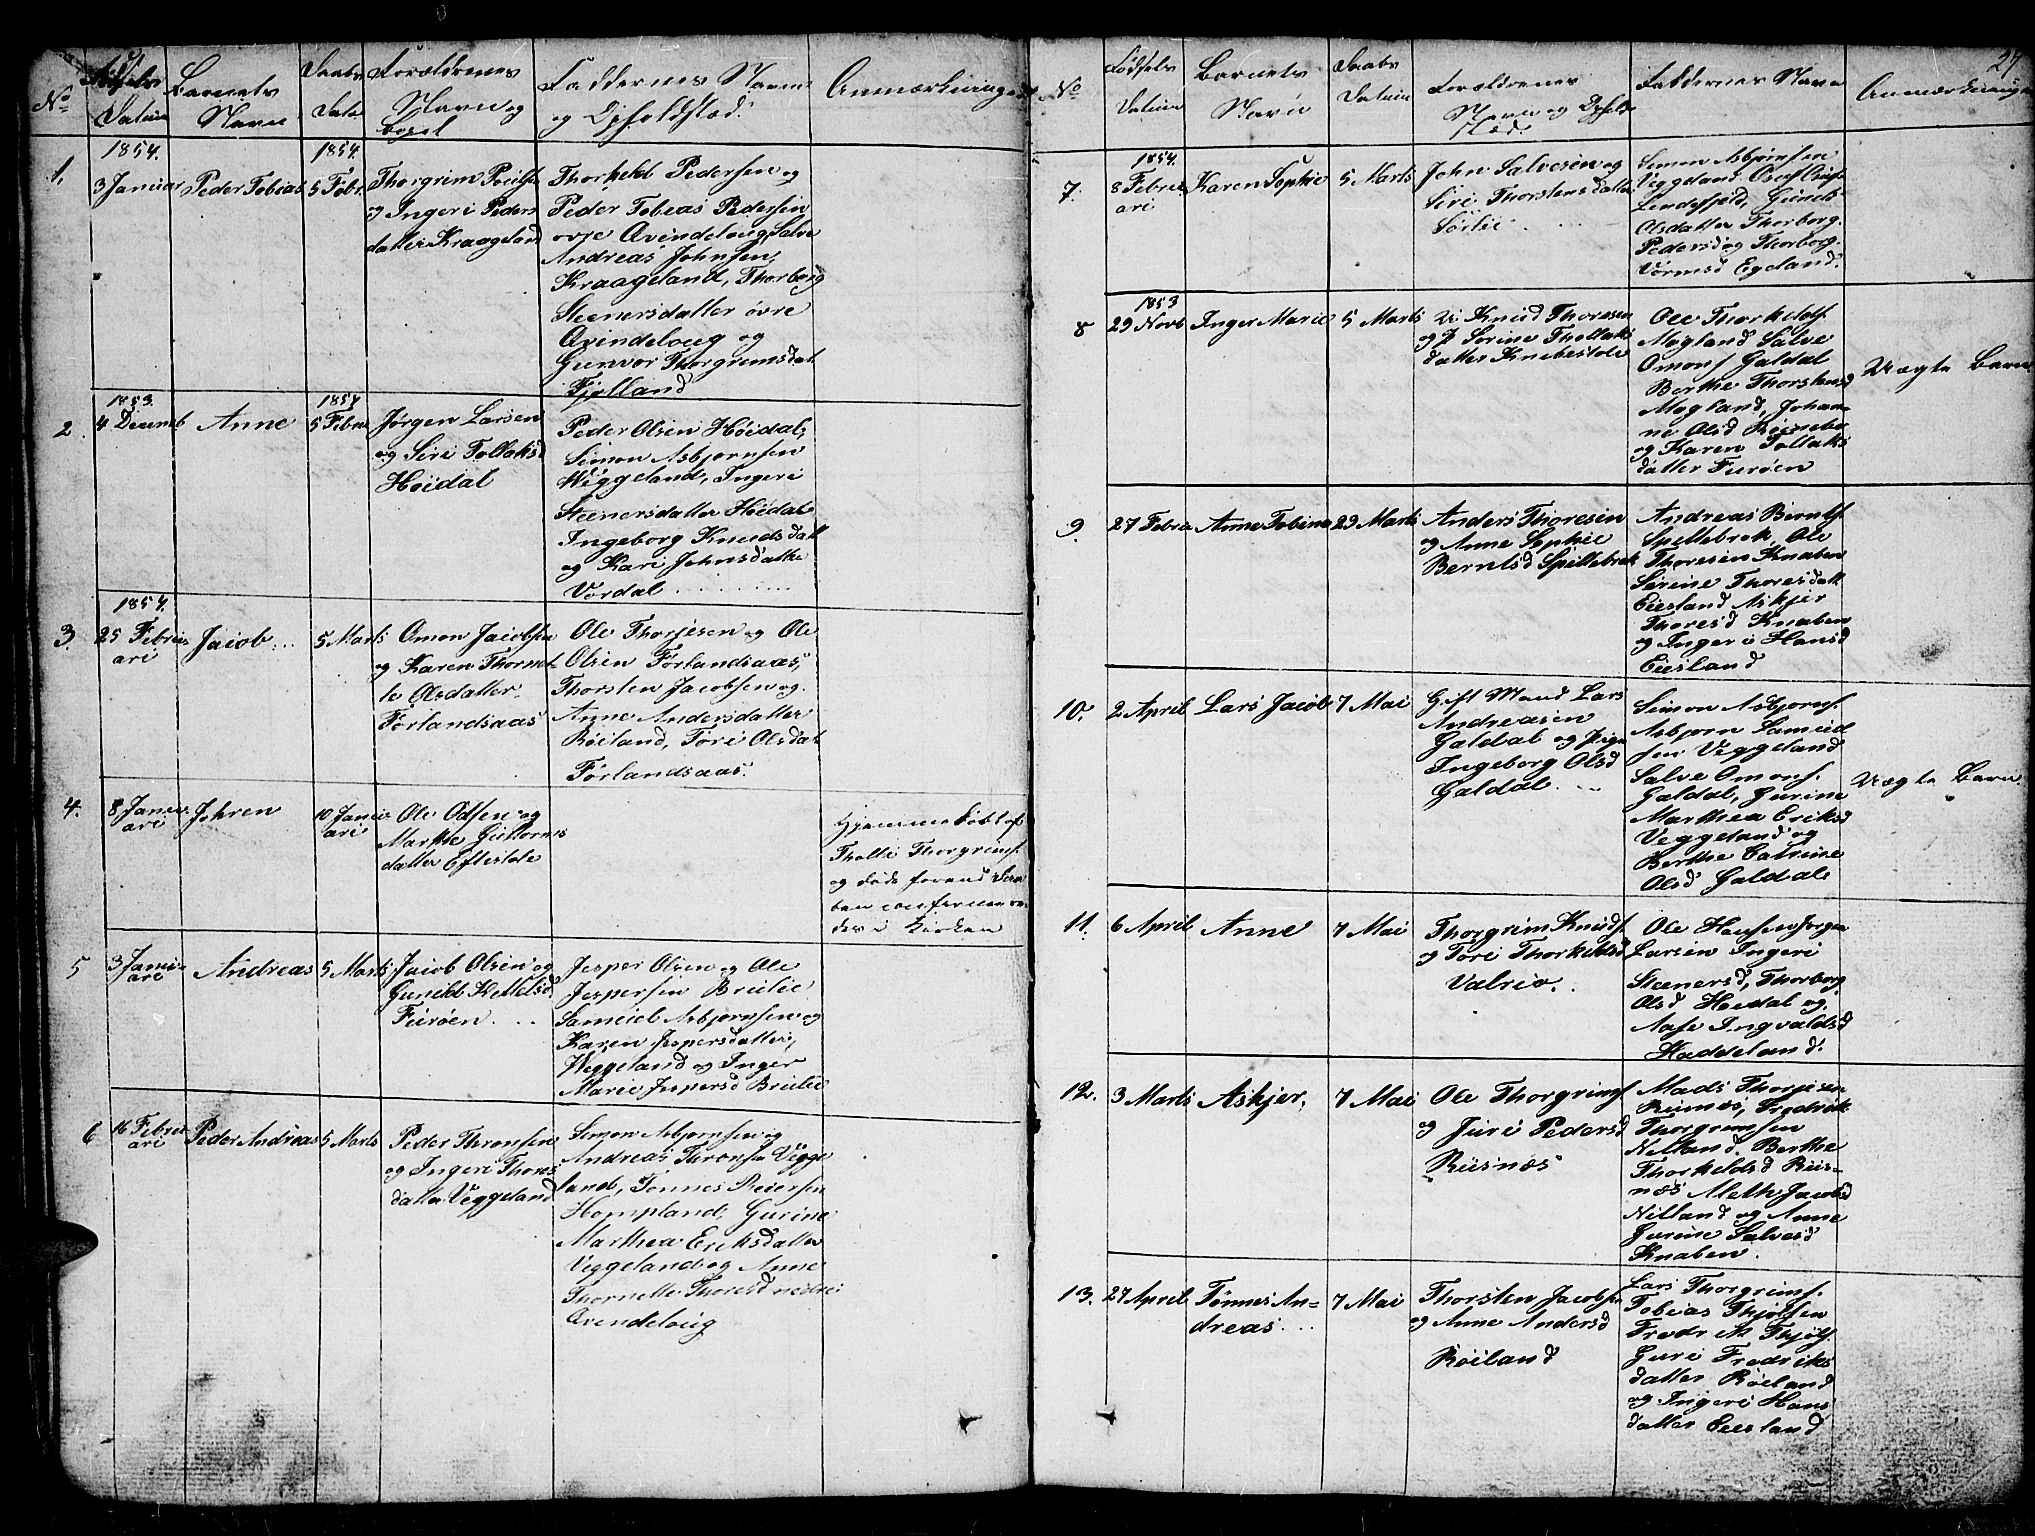 No
Fødsels
Datum
Barnets
Navn
Daabs
Dato
Forældrenes
Navn og
Bopæl
Faddernes Navne
og Opholdsted
Anmærkninger
1.
1854.
3 Januar
Peder Tobias
1854.
5 Febr.
Thorgrim Poulsen
og Ingeri Peders
datter Kraageland
Thorkeld Pedersen og
Peder Tobias Pedersen
øvre Qvindeloug, Salve
Andreas Johnsen,
Kraageland, Thorborg
Steenersdatter øvre
Qvindeloug og
Gunvor Thorgrimsdat
Fjelland
2.
1853.
4 Decemb
Anne
1854
5 Febru
Jørgen Larsen
og Siri Tollaksd
Høidal
Peder Olsen Høidal,
Simon Asbjørnsen
Weggeland, Ingeri
Steenersdatter Høidal
Ingeborg Knudsdatt
og Kari Johnsdatter
Vordal
3.
1854.
25 Febru
ari
Jacob
5 Marts
Omon Jacobsen
og Karen Thormet
te Olsdatter
Førlandsaas
Ole Thorjesen og Ole
Olsen Førlandsaas,
Thorsten Jacobsen og
Anne Andersdatter
Røiland, Tori Olsdat
Førlandsaas.
4.
8 Janu
ari
Johren
10 Janu
ari
Ole Odsen og
Marthe Guttorms
datter Eftestøle
Hjemmedøbt af
Tholli Thorgrims.
og døde forend Daa
ben confirmere
des i Kirken
5
3 Janu
ari
Andreas
5 Marts
Jacob Olsen og
Gunild Ketelsd
Furøen
Jesper Olsen og Ole
Jespersen Brulie
Samuel Asbjørnsen og
Karen Jespersdatter,
Weggeland og Inger
Marie Jespersd Brulie
6
16 Febru
ari
Peder Andreas
5 Marts
Peder Thronsen
og Ingeri Thores
datter Veggeland
Simon Asbjørnsen og
Andreas Thronsen Vegge
land, Tønnes Reiersen
Hompland, Gurine
Marthea Eriksdatter
Veggeland og Anne
Thornette Thoresd nedre
Qvindeloug
27
No
Fødsels
Datum
Barnets
Navn
Daabs
Datum
Forældrenes
Navn og Ophold
sted
Faddernes Navne
Anmærkninger
7.
1854.
8 Febru
ari
Karen Sophie
5 Marts
John Salvesen og
Siri Thorstensdatter
Sørlie
Simon Asbjørnsen
Veggeland Oluf Olufs.
Lindefjeld, Gunild
Olsdatter Thorborg
Pedersd og Thorborg
Vormsd Egeland.
8
1853
29 Novb
Inger Marie
5 Marts
Knud Thoresen
og P Sorine Thollaks
datter Knebestøle
Ole Thorkelds.
Mogland Salve
Omons Galdal
Berthe Thorstensd
Mogland, Johan-
ne Olsd
og Karen Tollaks
datter Furøen
Uægte Barn
9.
27 Febru
Anne Tobine
29 Marts
Anders Thoresen
og Anne Sophie
Berntsd Spillebrok
Andreas Bernts.
Spillebrok, Ole
Thoresen Knaben
Serine Thoresdatt
Eiesland Askjer
Thoresd Knaben
og Ingeri Hansd
Eiesland
10.
2 April
Lars Jacob
7 Mai
Gift Mand Lars
Andreasen
Galdal og Pige
Ingeborg Olsd
Galdal
Simon Asbjørns.
Asbjørn Samuel
sen Veggeland
Salve Omons.
Galdal, Gurine
Marthea Eriksd
Veggeland og
Berthe Catrine
Olsd Galdale
Uægte Barn.
11.
6 April
Anne
7 Mai
Thorgrim Knuds.
og Tori Thorkeldsd
Valrio
Ole Hansen Jørgen
Larsen Ingeri
Steenersd, Thorborg
Olsd Høidal og
Aase Ingvaldsd
Haddeland.
12.
3 Marts
Askjer,
7 Mai
Ole Thorgrims.
og Juri Pedersd
Risnæs
Mads Thorjesen
Risnæs, Fredrik
Thorgrimsen
Nilland, Berthe
Thorkeldsd Ris-
næs Meth. Jacobsd
Nilland og Anne
Jurine Salvesd
Knaben.
13.
27 April
Tønnes An=
dreas
7 Mai
Thorsten Jacobsen
og Anne Andersd
Røiland
Lars Thorgrims.
Tobias Thjøtsen
Fredr M Thjøts.
Guri Fredriks
datter Røiland
og Ingeri Hans
datter Eiesland